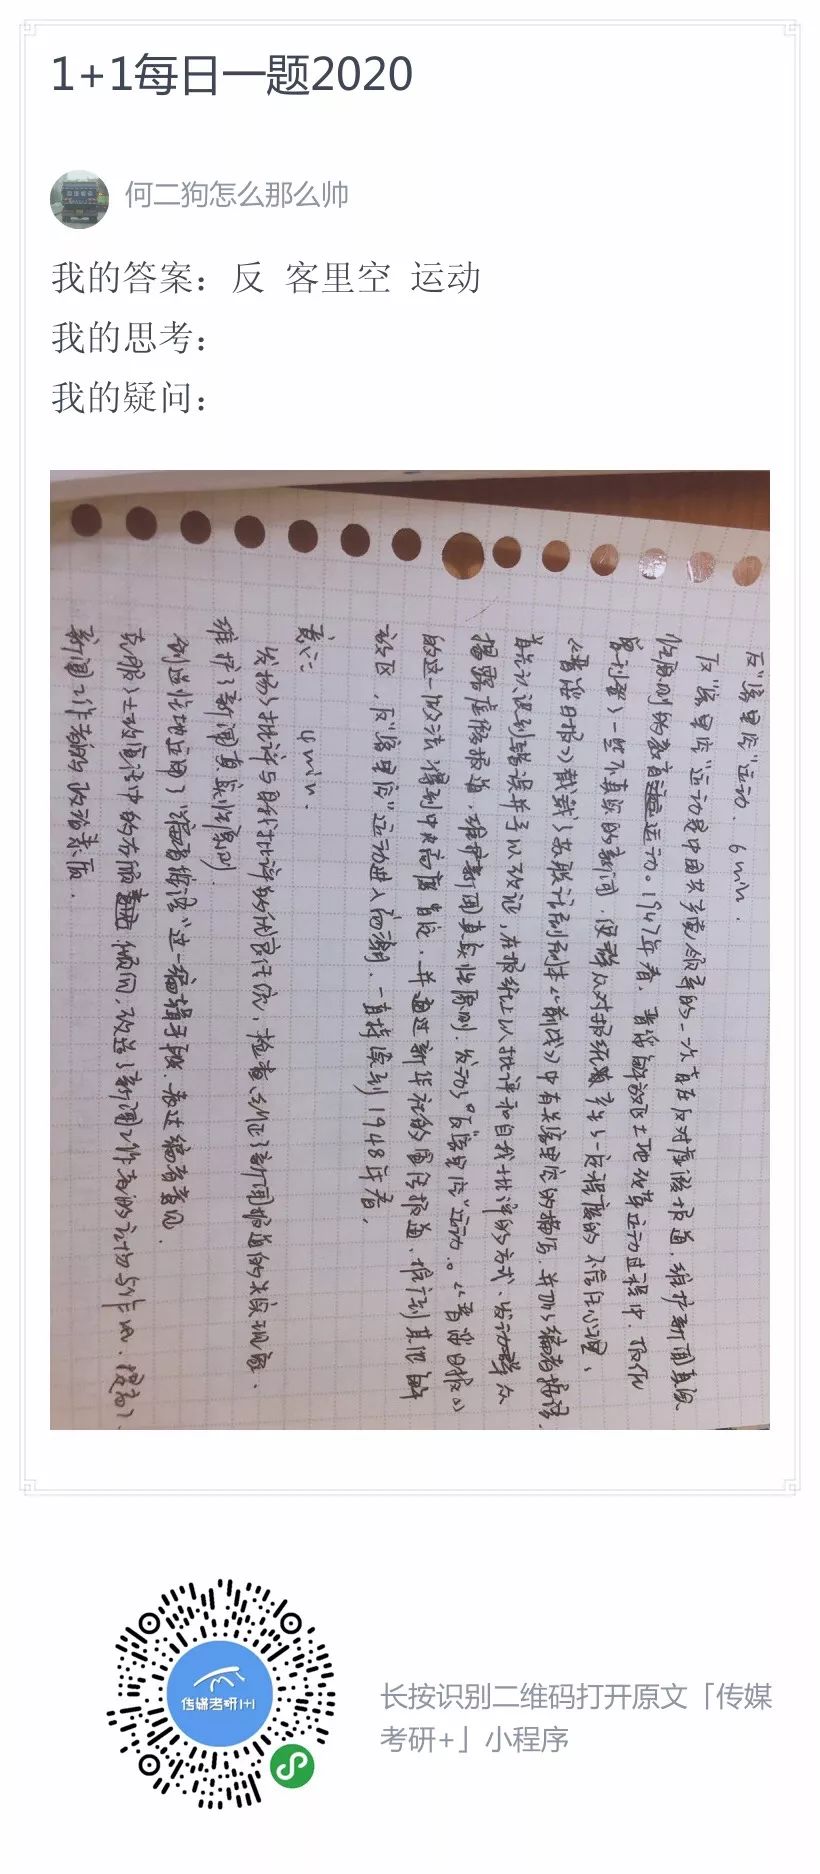 1+1每日一题2020
何二狗怎么那么帅
我的答案：反 客里空 运动
我的思考：
我的疑问：
反“客里空”运动. 6min.
反“客里空”运动是中国共产党领导的一次旨在反对虚假报道.维护新闻真实
性原则的教育运动。1947年春，晋绥解放区土地改革运动过程中.报纸
客刊登了一些不真实的新闻.使群众对报纸产生了一定程度的不信任心理,
《晋绥日报》载了苏联话剧剧本《前线》中有关客里空的描写.并加了编者按语.
使其认识到错误并予以改正,在报纸上以批评和自我批评的方式、发动群众
揭露虚假报道.维护新闻真实性原则.发动了“反客里空”运动.《晋绥日报》
的这一做法得到中央高度肯定.并通过新华社的宣传报道.推行到其他解
放区.反“客里空”运动进入高潮.一直持续到1948年春,
意义: 4min.
发扬了批评与自我批评的优良传统,检查纠正了新闻报道的失实现象.
维护了新闻真实性原则.
创造性地运用了“编者按语”这一编辑手段.表达编者意见.
克服土改宣传中的右倾倾向.改造了新闻工作者的立场与作风.提高了
新闻工作者的政治素质.
传媒考研1+1
长按识别二维码打开原文「传媒
考研+」小程序